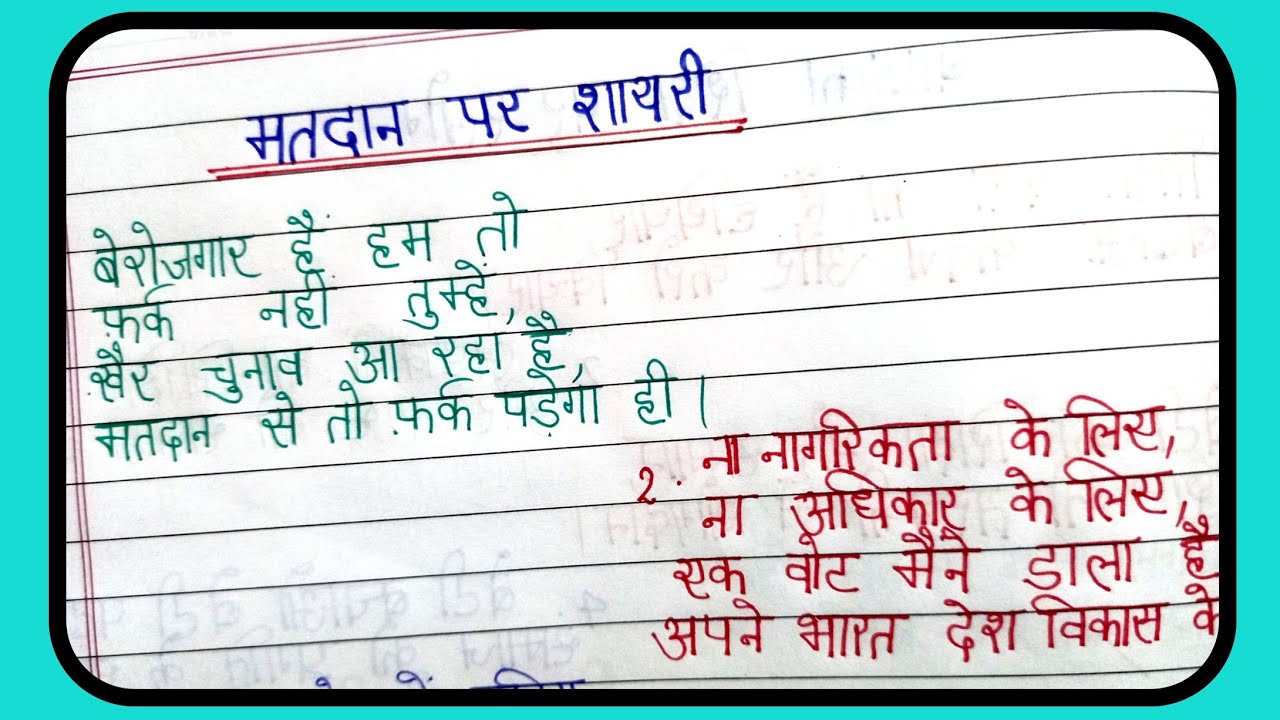 मतदान पर शायरी
बेरोजगार हैं हम तो
फ़र्क नहीं तुम्हें,
ख़ैर चुनाव आ रहा है,
मतदान से तो फ़र्क पड़ेगा ही।
2. ना नागरिकता के लिए,
ना अधिकार के लिए,
एक वोट मैंने डाला है
अपने भारत देश विकास के